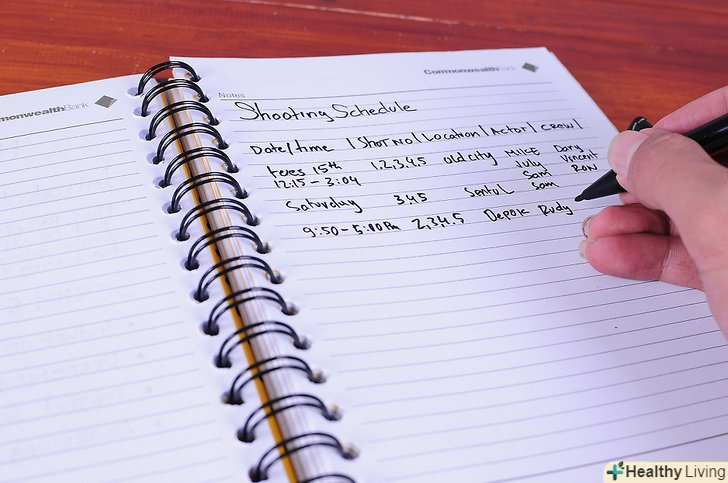 monwealthBank
CommonwealthBank
Notes
Shooting Schedule
Date/time | Shot No | Location | Actor | Crew |
tues 15th 1,2,3,4,5 old city MIKE Dary
12:15 - 3:04 July Vincent
Sam RON
Saturday 3,4,5 Sentul Sam
9:50 - 5:00 PM 2,3,4,5 Depok Rudy
Healthy Living